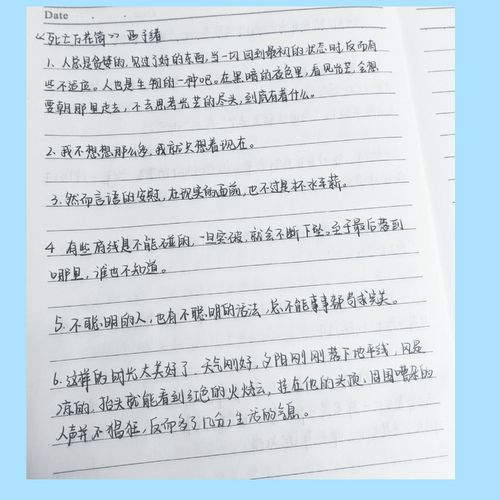 Date
《死亡万花筒》 西子绪
1、人总是贪婪的,见过了好的东西,当一切回到最初的状态时,反而有
些不适应。人也是生物的一种吧。在黑暗的夜色里,看见光芒,会想
要朝那里走去,不去思考光芒的尽头,到底有着什么。
2、我不想想那么多,我就只想着现在。
3、然而言语的安慰,在现实的面前,也不过是杯水车薪。
4、有些底线是不能碰的,一旦突破,就会不断下坠,至于最后落到
哪里,谁也不知道。
5、不聪明的人,也有不聪明的活法,总不能事事都苛求完美。
6、这样的时光太美好了,天气刚好,夕阳刚刚落下地平线,风是
凉的,抬头就能看到红色的火烧云,挂在他的头顶,周围嘈杂的
人声并不猖狂,反而多了几分,生活的气息。